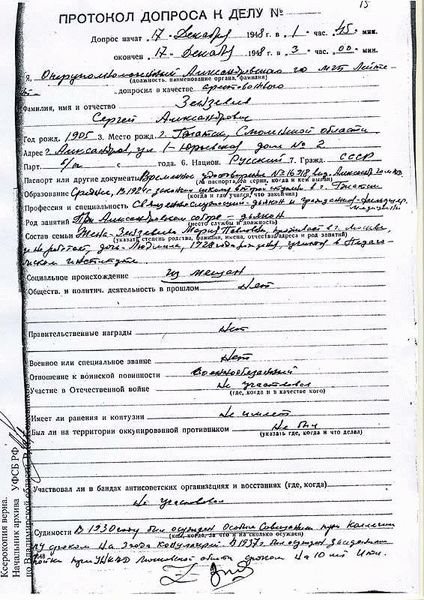 15
ПРОТОКОЛ ДОПРОСА К ДЕЛУ №
Допрос начат 17 Декабря 1948 г. в 1 час. 45 мин.
окончен 17 Декабря 1948 г. в 3 час. 00 мин.
Я, Оперуполномоченный Александровского го МГБ
(должность, наименование органа, фамилия)
допросил в качестве арестованного
Фамилия, имя и отчество
Сергей Александрович
Год рожд. 1905 3. Место рожд. г. Гжатск, Смоленской области
Адрес г. Александров ул 1- дом № 2
5. Парт. б/п 6. Национ. Русский 7. Гражд. СССР
Паспорт или другие документы Временное удостоверение
(№ паспорта, серия, когда и кем выдан)
Образование Среднее, в 1924 г. школу второй ступени в г. Гжатске
(когда и где учился, что закончил)
Профессия и специальность дьякон и
Род занятий При Александровском соборе - дьякон
(место службы и должность)
Состав семьи Жена - Мария Павловна, проживает в г. Москве,
(указать степень родства, фамилии, имена, отчества, адреса и род занятий)
не работает, дочь - Людмила, 1928 года рожден,
институте
Социальное происхождение из мещан
Обществ. и политич. деятельность в прошлом Нет
Правительственные награды Нет
Военное или специальное звание Нет
Отношение к воинской повинности Военнообязанный
Участие в Отечественной войне Не участвовал
(где, когда и в качестве кого)
Имеет ли ранения и контузии Не имеет
Был ли на территории оккупированной противником Не был
(указать где, когда и что делал)
Участвовал ли в бандах антисоветских организациях и восстаниях (где, когда)
Не участвовал
Судимости В 1930 году был осужден Особым Совещанием при Коллегии
(кем, когда, за что и на сколько осужден)
ГПУ сроком на 3 года В 1937 г. был осужден
тройки при УНКВД области сроком на 10 лет ИТЛ.
Ксерокопия верна.
Начальник архива УФСБ РФ
по Владимирской области